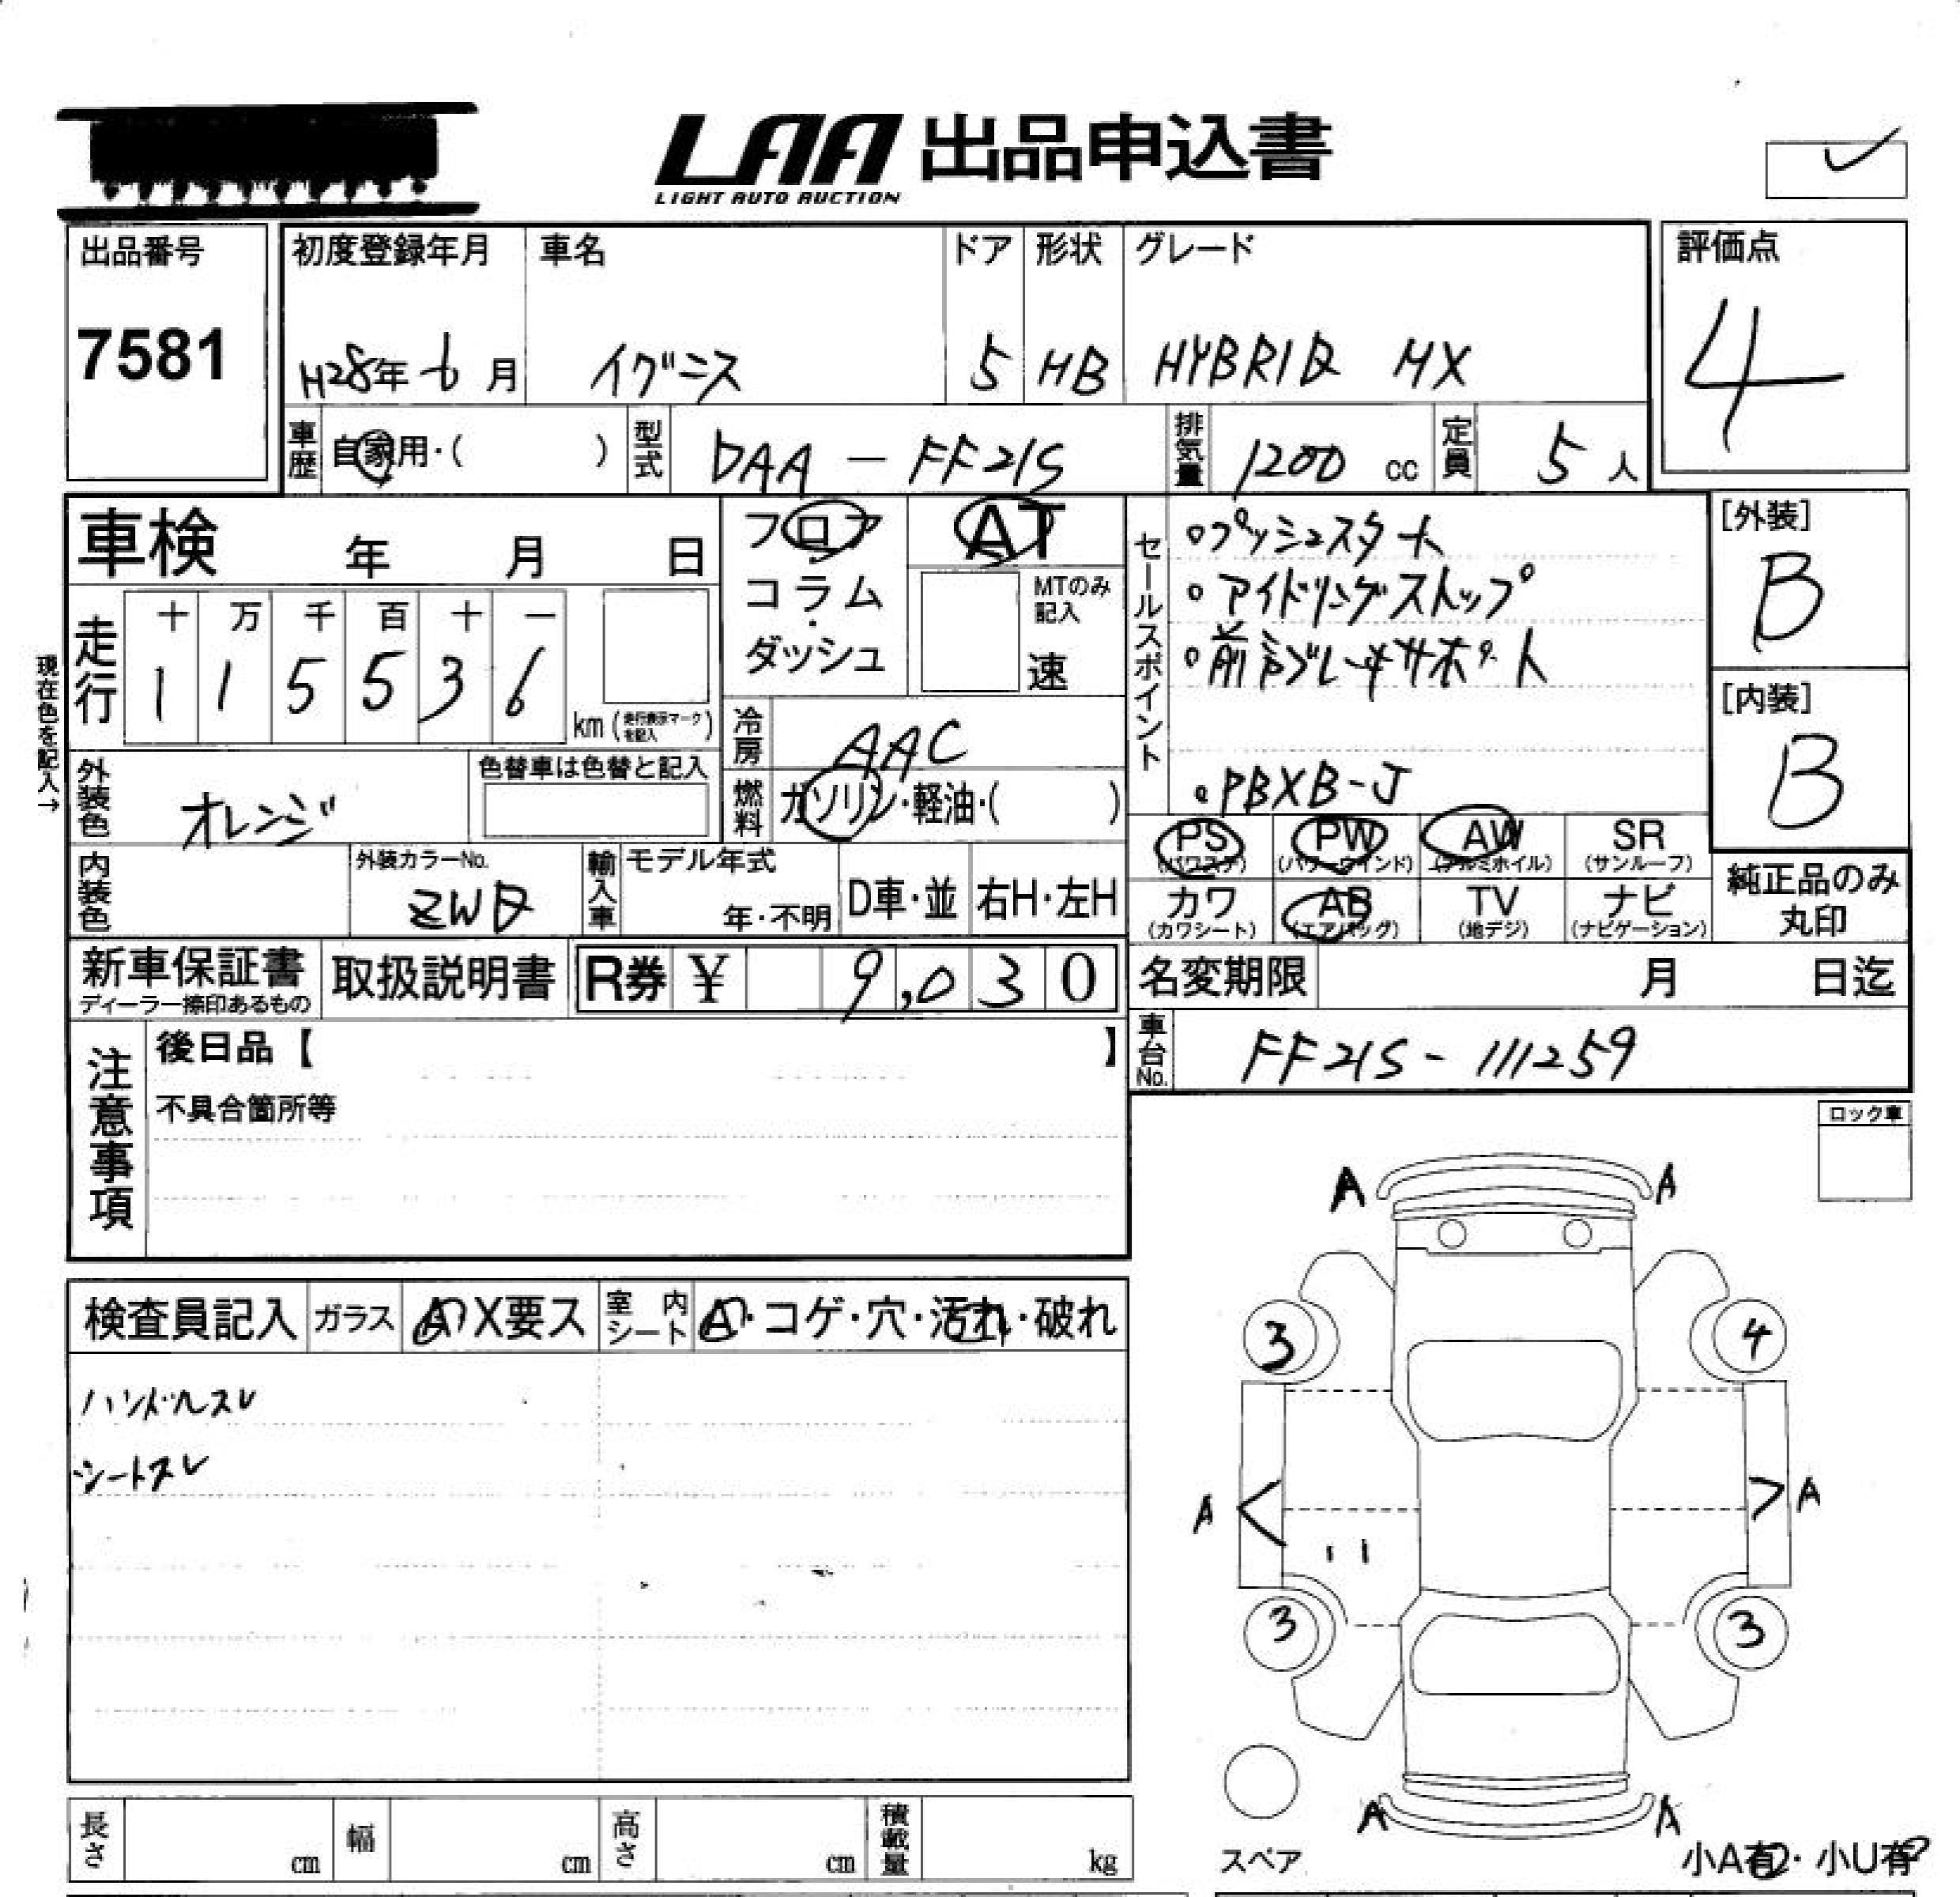 LAA 出品申込書
LIGHT AUTO AUCTION
出品番号
7581
初度登録年月 車名 ドア 形状 グレード
H28年 6月 イグニス 5 HB HYBRID MX
評価点
4
車歴 自家用・( ) 型式 DAA-FF21S 排気量 1200 cc 定員 5 人
車検 年 月 日
フロア AT
コラム・ダッシュ
MTのみ記入
速
セールスポイント
。プッシュスタート
。アイドリングストップ
。PBXB-J
[外装]
B
[内装]
B
現在色を記入→
走行 十 万 千 百 十 一
1 1 5 5 3 6
km (走行表示マークを記入)
冷房 AAC
燃料 ガソリン・軽油・( )
外装色 オレンジ 色替車は色替と記入
内装色 外装カラーNo. ZWD
輸入車 モデル年式 年・不明 D車・並 右H・左H
PS (パワステ) PW (パワーウインド) AW (アルミホイル) SR (サンルーフ)
カワ (カワシート) AB (エアバッグ) TV (地デジ) ナビ (ナビゲーション)
純正品のみ丸印
新車保証書 ディーラー捺印あるもの 取扱説明書 R券 ¥ 9,030
名変期限 月 日迄
車台No. FF21S-111259
注意事項
後日品【 】
不具合箇所等
ロック車
検査員記入 ガラス A・X要ス 室内シート A・コゲ・穴・汚れ・破れ
ハンドルスレ
シートスレ
A A
3 4
A A
3 3
A A
スペア
小A有・小U有
長さ cm 幅 cm 高さ cm 積載量 kg